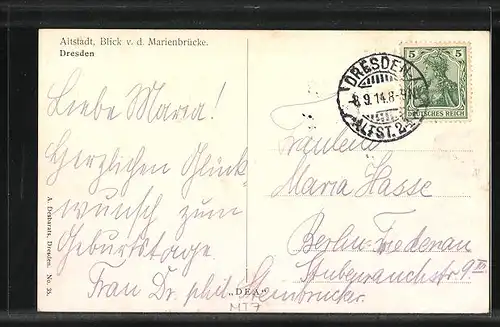 Altstadt, Blick v. d. Marienbrücke.
Dresden
Liebe Maria!
Herzlichen Glück-
wunsch zum
Geburtstage.
Frau Dr. phil. Steinbrucker.
Fräulein
Maria Hasse
Berlin-Friedenau
Stubenrauchstr 9 III
DRESDEN
8.9.14.8-9
ALTST. 24
5 5
DEUTSCHES REICH
A. Denbarats, Dresden. No. 35.
„DEA"